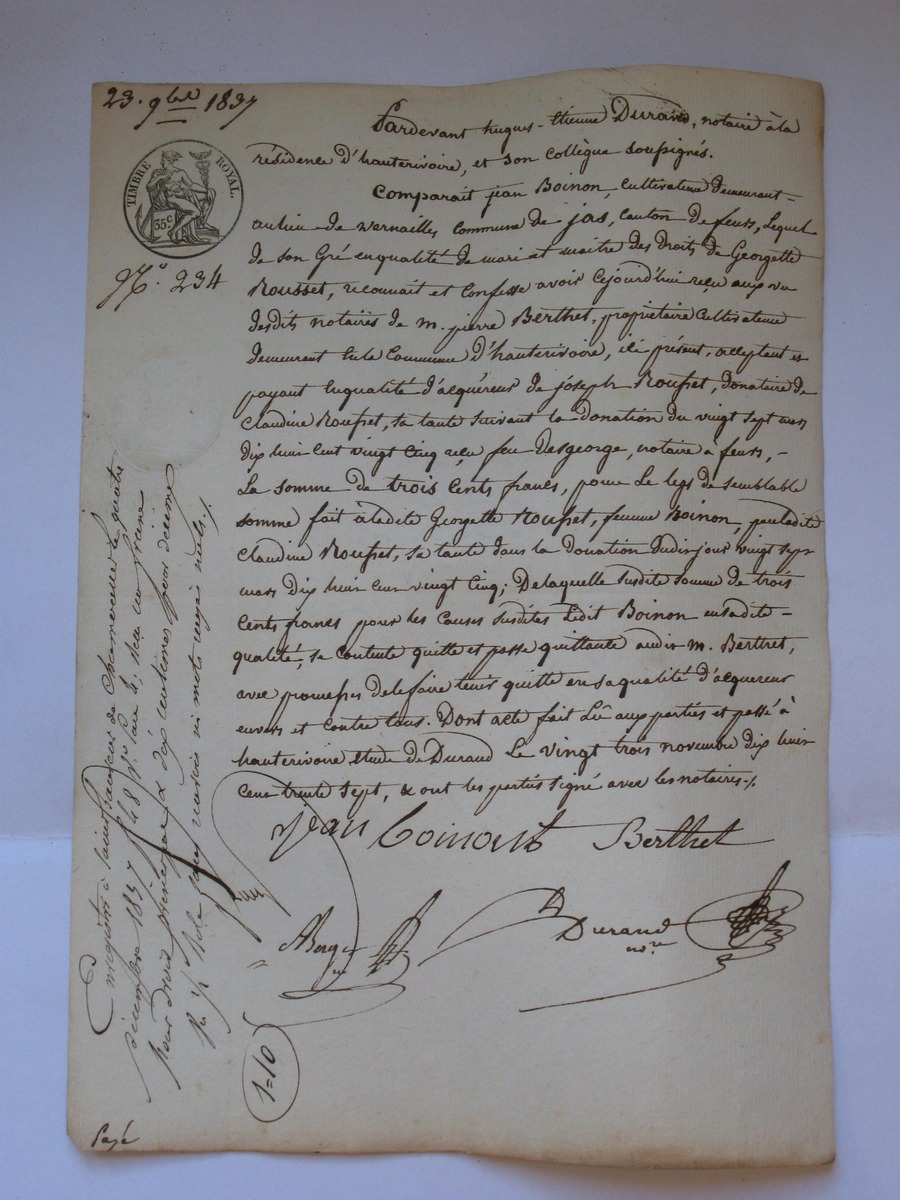 23. 9bre 1837
TIMBRE ROYAL.
35c
N°. 234
Pardevant hugues-Etienne Durand, notaire à la
résidence d'hauterivoire, et son collègue soussignés.
Comparait jean Boinon, Cultivateur demeurant
au lieu de vernailles Commune de jas, canton de feurs, Lequel
de son Gré en qualité de mari et maitre des droits de Georgette
Rousset, reconnait et Confesse avoir Cejourd'hui reçu aux vu
desdits notaires de m. pierre Berthet, propriétaire Cultivateur
demeurant En la Commune d'hauterivoire, ici présent, acceptant et
payant En qualité d'acquéreur de joseph Rousset, donataire de
Claudine Rousset, sa tante suivant la donation du vingt sept mars
dix huit Cent vingt Cinq reçu feu Desgeorge, notaire à feurs, -
La somme de trois Cents francs, pour Le legs de semblable
somme fait à ladite Georgette Rousset, femme Boinon, par ladite
Claudine Rousset, sa tante dans la Donation dudit jour vingt sept
mars Dix huit Cent vingt Cinq; De laquelle susdite somme de trois
Cents francs pour les Causes susdites Ledit Boinon en sadite -
qualité, se Contente quitte et passe quittance audit m. Berthet,
avec promesses de le faire tenir quitte en sa qualité d'acquereur
envers et Contre tous. Dont acte fait Lû aux parties et passé à
hauterivoire étude de Durand Le vingt trois novembre dix huit
Cent trente sept, & ont les parties signé avec les notaires./.
jean Boinont Berthet
Durand
nre
Enregistré à Saint Laurent de Chamousset le quatre
décembre 1837 f° 48 v° Case 4, reçu un franc
pour droit principal & dix centimes pour décime
1=10
Payé